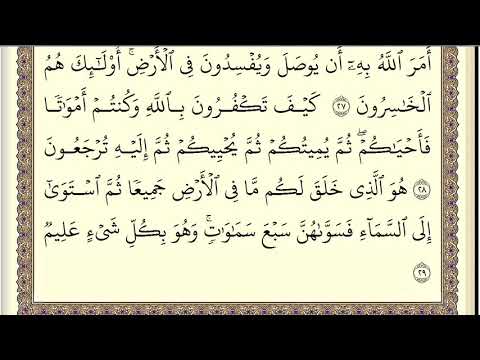 أَمَرَ ٱللَّهُ بِهِۦٓ أَن يُوصَلَ وَيُفْسِدُونَ فِى ٱلْأَرْضِ ۚ أُو۟لَـٰٓئِكَ هُمُ
ٱلْخَـٰسِرُونَ ٢٧ كَيْفَ تَكْفُرُونَ بِٱللَّهِ وَكُنتُمْ أَمْوَٰتًا
فَأَحْيَـٰكُمْ ۖ ثُمَّ يُمِيتُكُمْ ثُمَّ يُحْيِيكُمْ ثُمَّ إِلَيْهِ تُرْجَعُونَ
٢٨ هُوَ ٱلَّذِى خَلَقَ لَكُم مَّا فِى ٱلْأَرْضِ جَمِيعًا ثُمَّ ٱسْتَوَىٰٓ
إِلَى ٱلسَّمَآءِ فَسَوَّىٰهُنَّ سَبْعَ سَمَـٰوَٰتٍ ۚ وَهُوَ بِكُلِّ شَىْءٍ عَلِيمٌ
٢٩